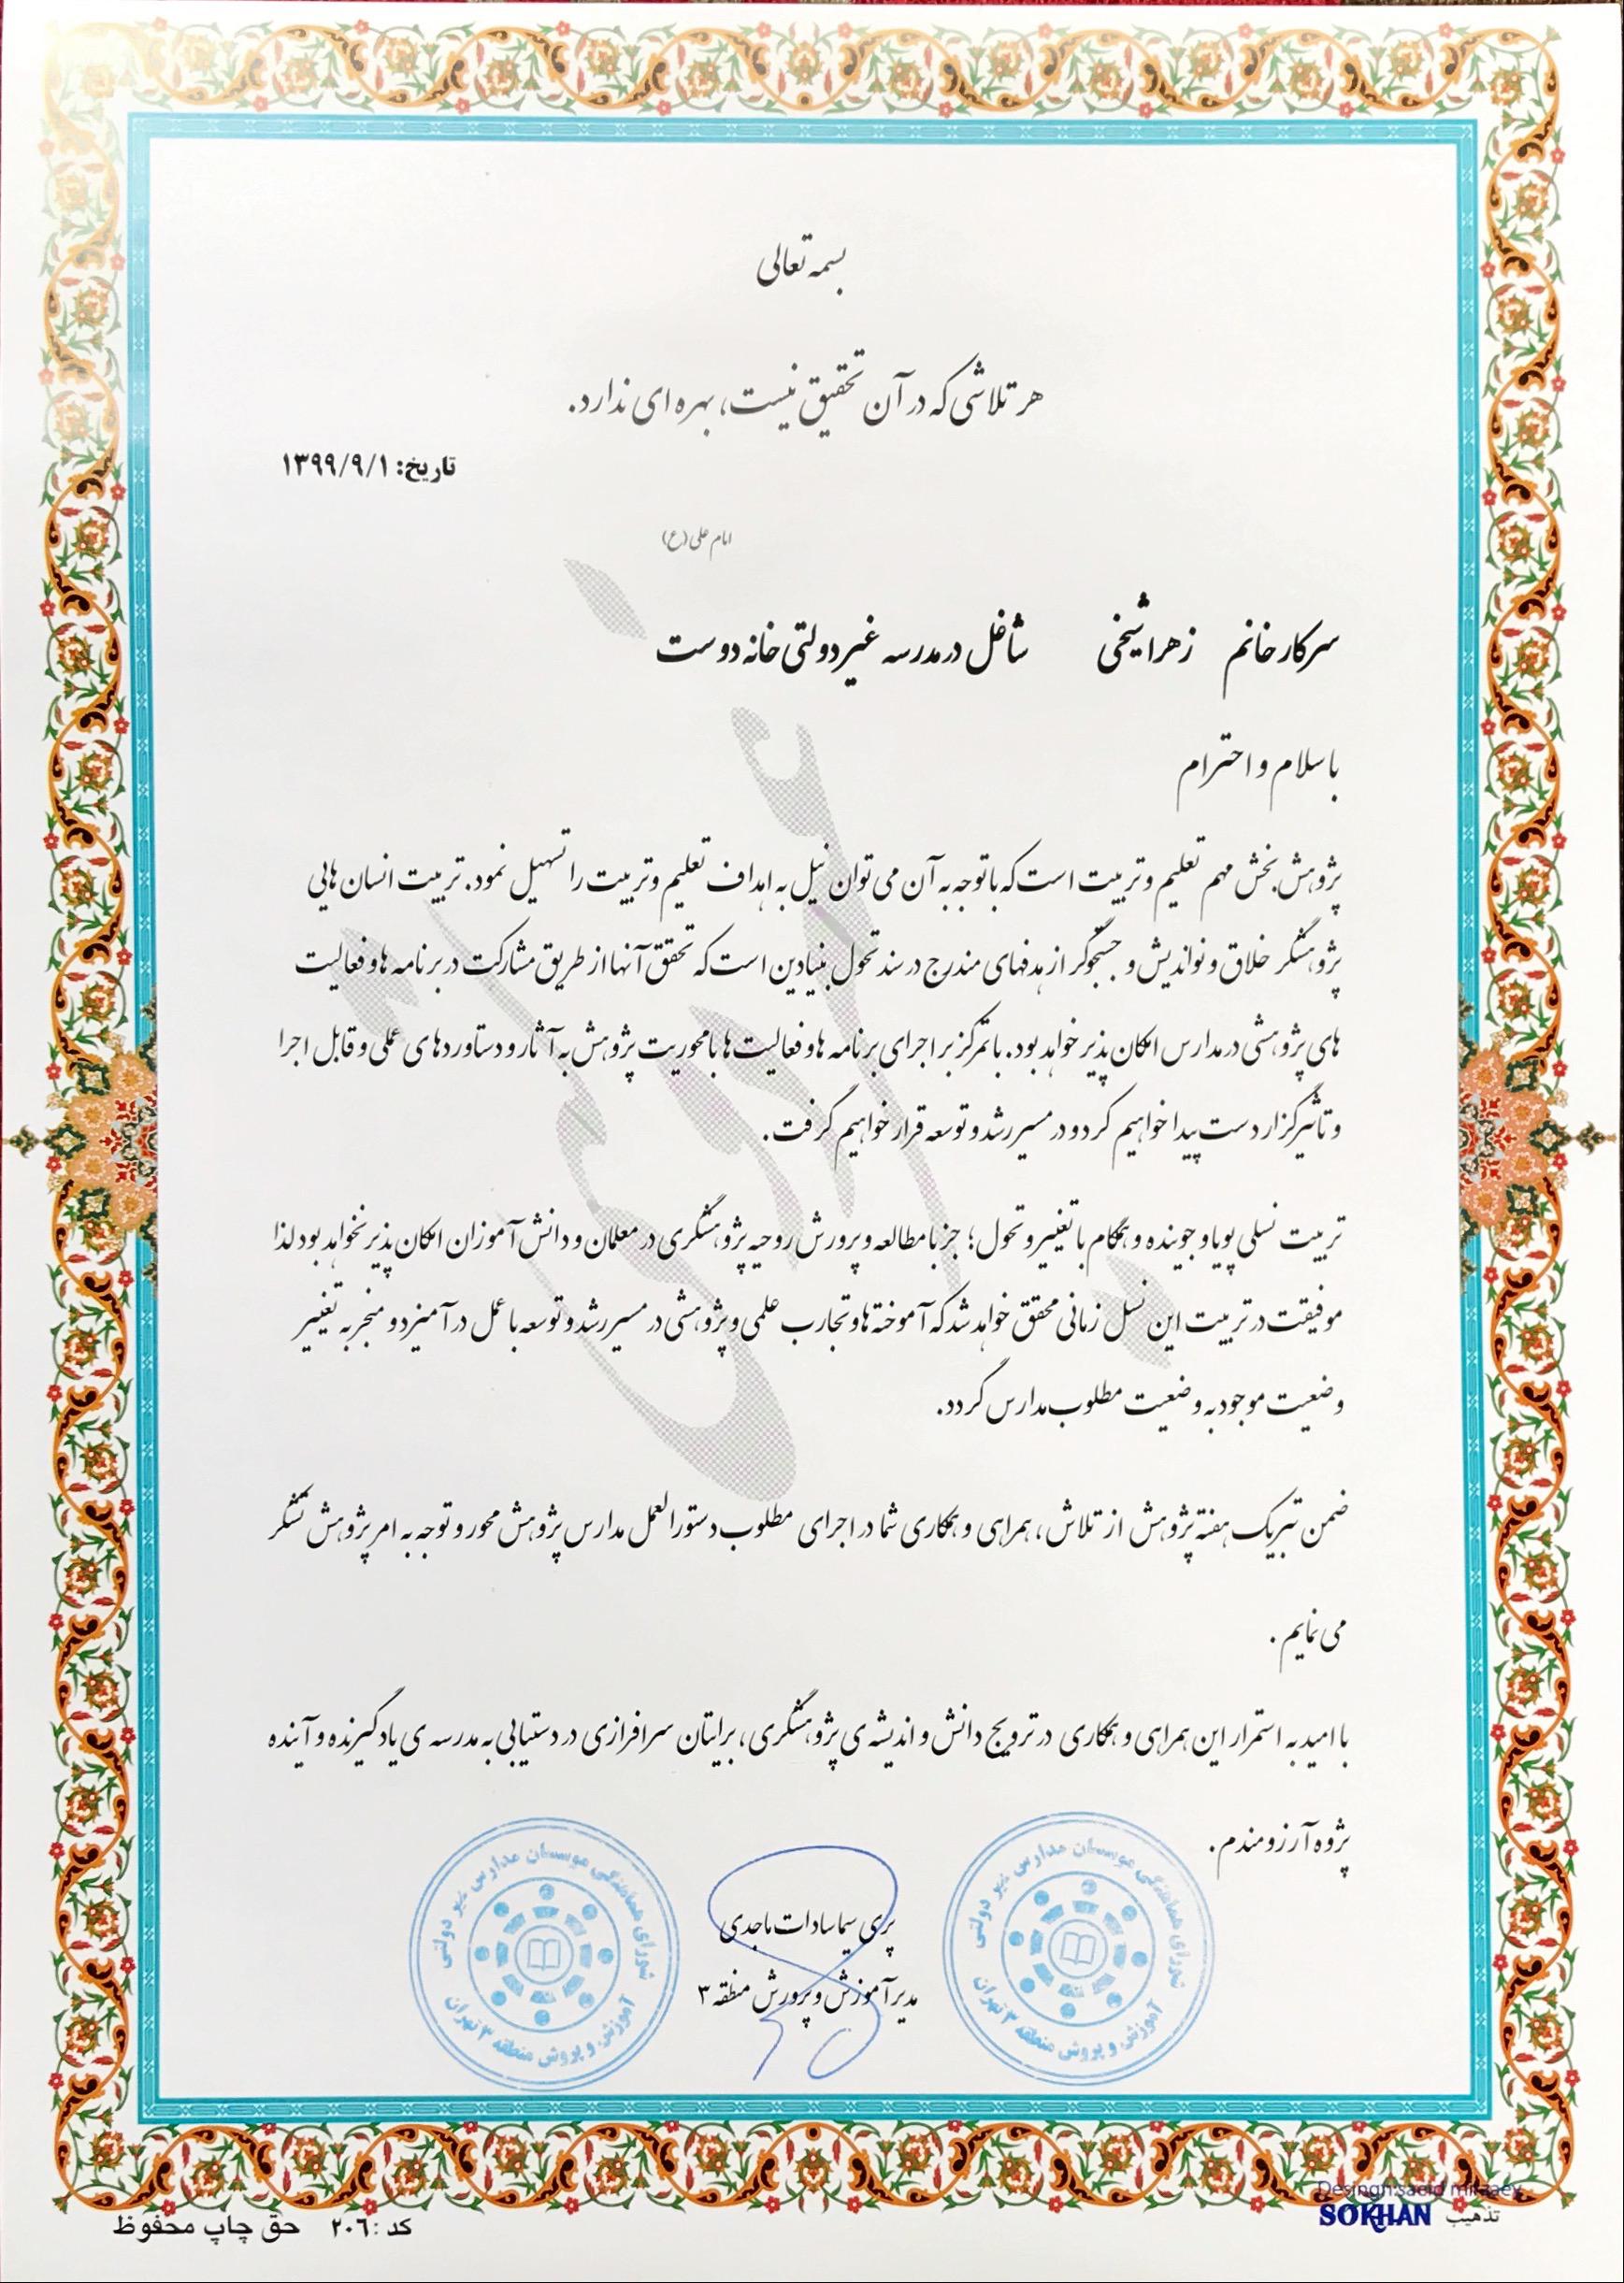 بسمه تعالی
هر تلاشی که در آن تحقیق نیست، بهره ای ندارد.
تاریخ: ۱۳۹۹/۹/۱
امام علی (ع)
سرکار خانم زهرا شیخی شاغل در مدرسه غیر دولتی خانه دوست
با سلام و احترام
پژوهش بخش مهم تعلیم و تربیت است که با توجه به آن می توان نیل به اهداف تعلیم و تربیت را تسهیل نمود. تربیت انسان هایی
پژوهشگر خلاق و نواندیش و جستجوگر از هدفهای مندرج در سند تحول بنیادین است که تحقق آنها از طریق مشارکت در برنامه ها و فعالیت
های پژوهشی در مدارس امکان پذیر خواهد بود. با تمرکز بر اجرای برنامه ها و فعالیت ها با محوریت پژوهش به آثار و دستاوردهای عملی و قابل اجرا
و تاثیرگزار دست پیدا خواهیم کرد و در مسیر رشد و توسعه قرار خواهیم گرفت.
تربیت نسلی پویا و جوینده و همگام با تغییر و تحول؛ جز با مطالعه و پرورش روحیه پژوهشگری در معلمان و دانش آموزان امکان پذیر نخواهد بود لذا
موفیقت در تربیت این نسل زمانی محقق خواهد شد که آموخته ها و تجارب علمی و پژوهشی در مسیر رشد و توسعه با عمل در آمیزد و منجر به تغییر
وضعیت موجود به وضعیت مطلوب مدارس گردد.
ضمن تبریک هفته پژوهش از تلاش، همراهی و همکاری شما در اجرای مطلوب دستورالعمل مدارس پژوهش محور و توجه به امر پژوهش تشکر
می نمایم .
با امید به استمرار این همراهی و همکاری در ترویج دانش و اندیشه ی پژوهشگری، برایتان سرافرازی در دستیابی به مدرسه ی یادگیرنده و آینده
پژوه آرزومندم.
شورای هماهنگی موسسان مدارس غیر دولتی
آموزش و پروش منطقه ۳ تهران
پری سیما سادات ماجدی
مدیر آموزش و پرورش منطقه ۳
شورای هماهنگی موسسان مدارس غیر دولتی
آموزش و پروش منطقه ۳ تهران
Desingn:saeid mirzaey
تذهیب SOKHAN
کد : ۲۰۶ حق چاپ محفوظ